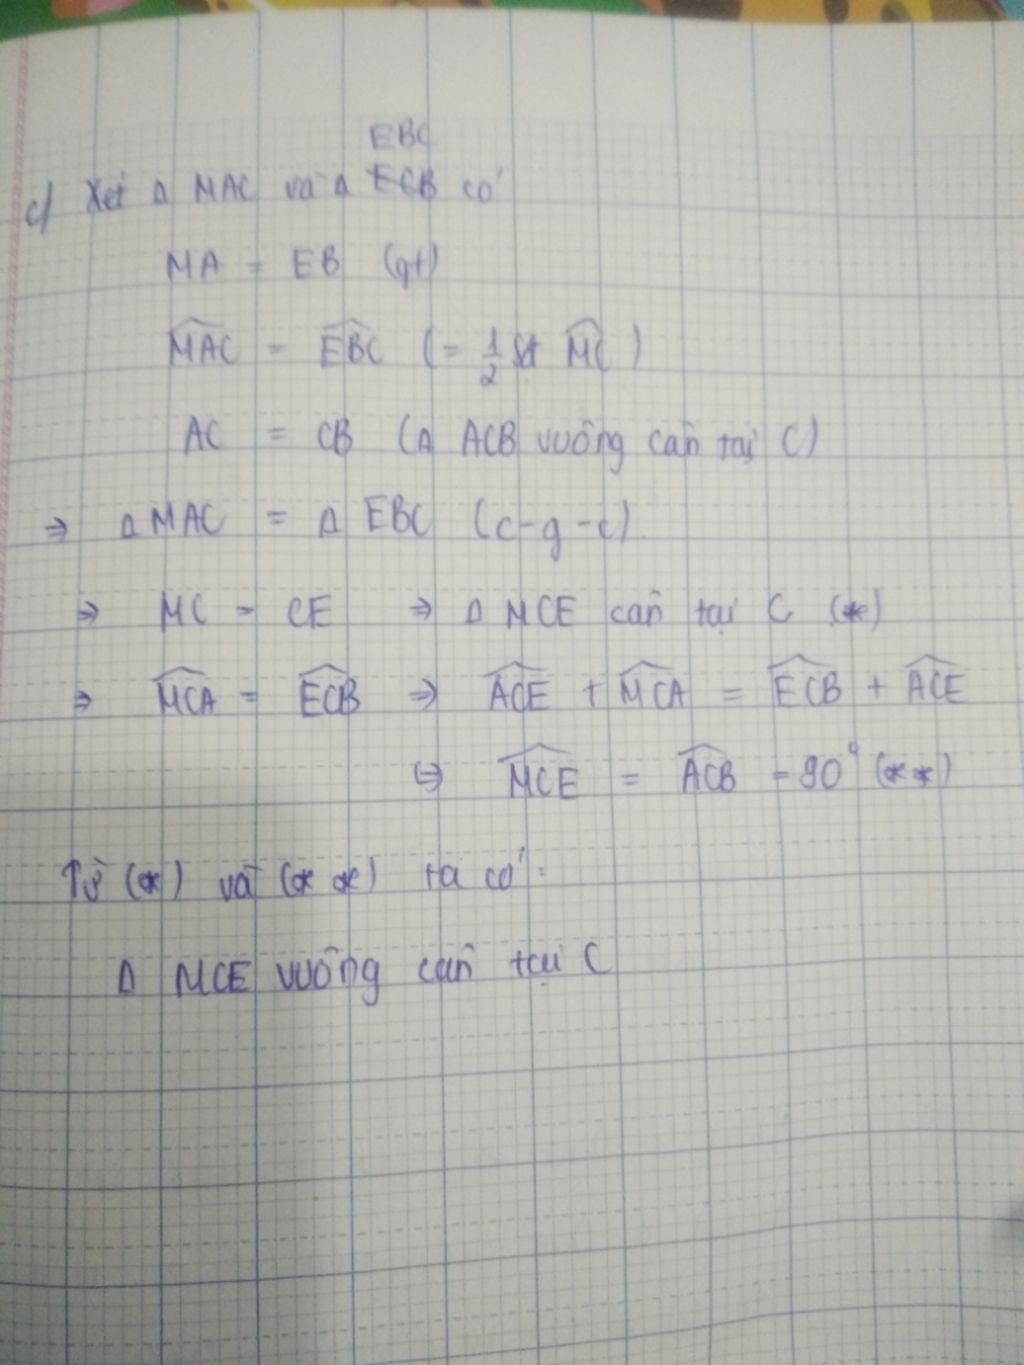 EBC
c) Xét Δ MAC và Δ ECB có
MA = EB (gt)
MAC = EBC (= 1/2 sđ MC)
AC = CB (Δ ACB vuông cân tại C)
⇒ Δ MAC = Δ EBC (c-g-c).
⇒ MC = CE ⇒ Δ MCE cân tại C (*)
⇒ MCA = ECB ⇒ ACE + MCA = ECB + ACE
⇔ MCE = ACB = 90° (**)
Từ (*) và (**) ta có:
Δ MCE vuông cân tại C